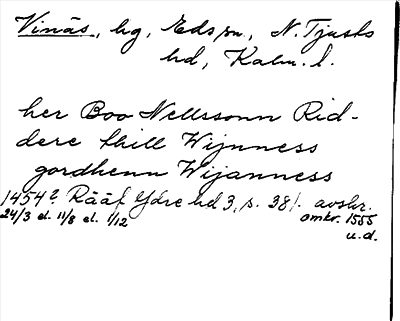 Vinäs, hg, Eds sn., N. Tjusts
hd, Kalm. l.
her Boo Nellssonn Rid-
dere thill Wijnness
gordhenn Wijanness
1454? Rääf Ydre hd 3, s. 381. avskr.
24/3 el. 11/8 el. 1/12 omkr. 1555
u.d.